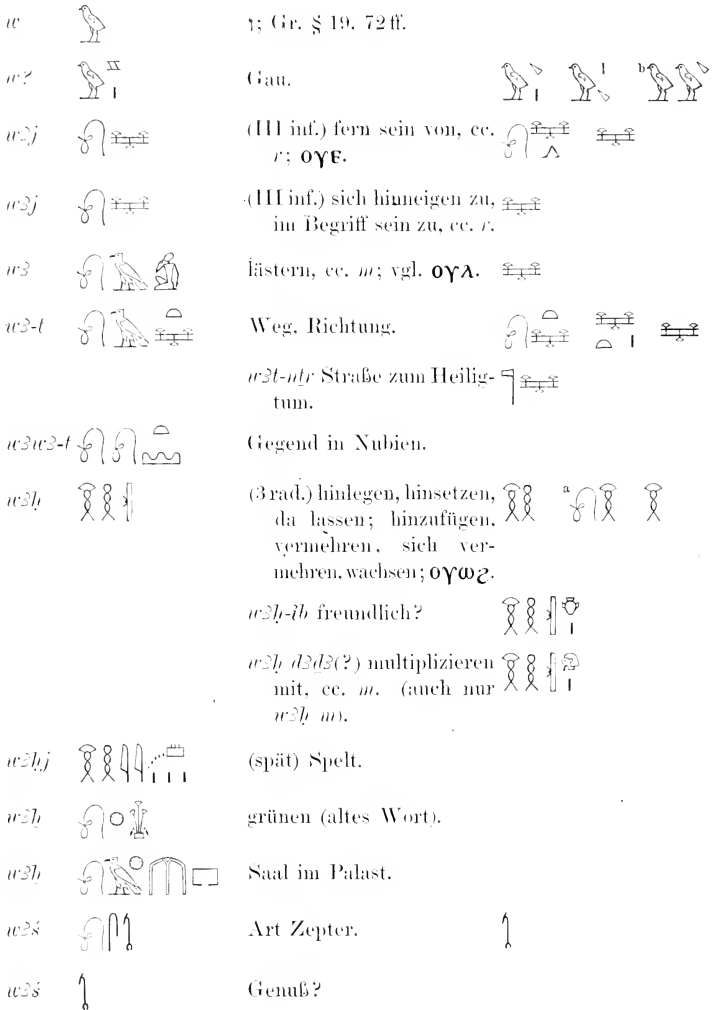 w ו; Gr. § 19. 72 ff.
w? Gau. b
wꜣj (III inf.) fern sein von, cc.
r; ⲟⲩⲉ.
wꜣj (III inf.) sich hinneigen zu,
im Begriff sein zu, cc. r.
wꜣ lästern, cc. m; vgl. ⲟⲩⲁ.
wꜣ-t Weg, Richtung.
wꜣt-nṯr Straße zum Heilig-
tum.
wꜣwꜣ-t Gegend in Nubien.
wꜣḥ (3 rad.) hinlegen, hinsetzen, a
da lassen; hinzufügen,
vermehren, sich ver-
mehren, wachsen; ⲟⲩⲱϩ.
wꜣḥ-ib freundlich?
wꜣḥ ḏꜣḏꜣ(?) multiplizieren
mit, cc. m. (auch nur
wꜣḥ m).
wꜣḥj (spät) Spelt.
wꜣḫ grünen (altes Wort).
wꜣḫ Saal im Palast.
wꜣś Art Zepter.
wꜣś Genuß?